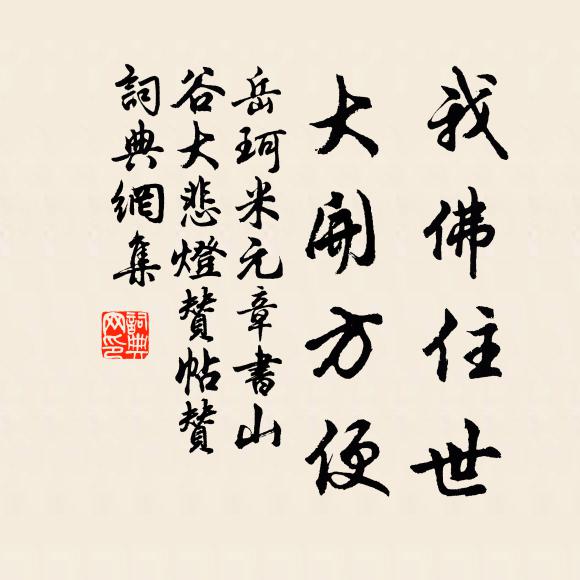 我佛住世
大開方便
岳珂米元章書山
谷大悲燈贊帖贊
詞典網集
詞典
网印